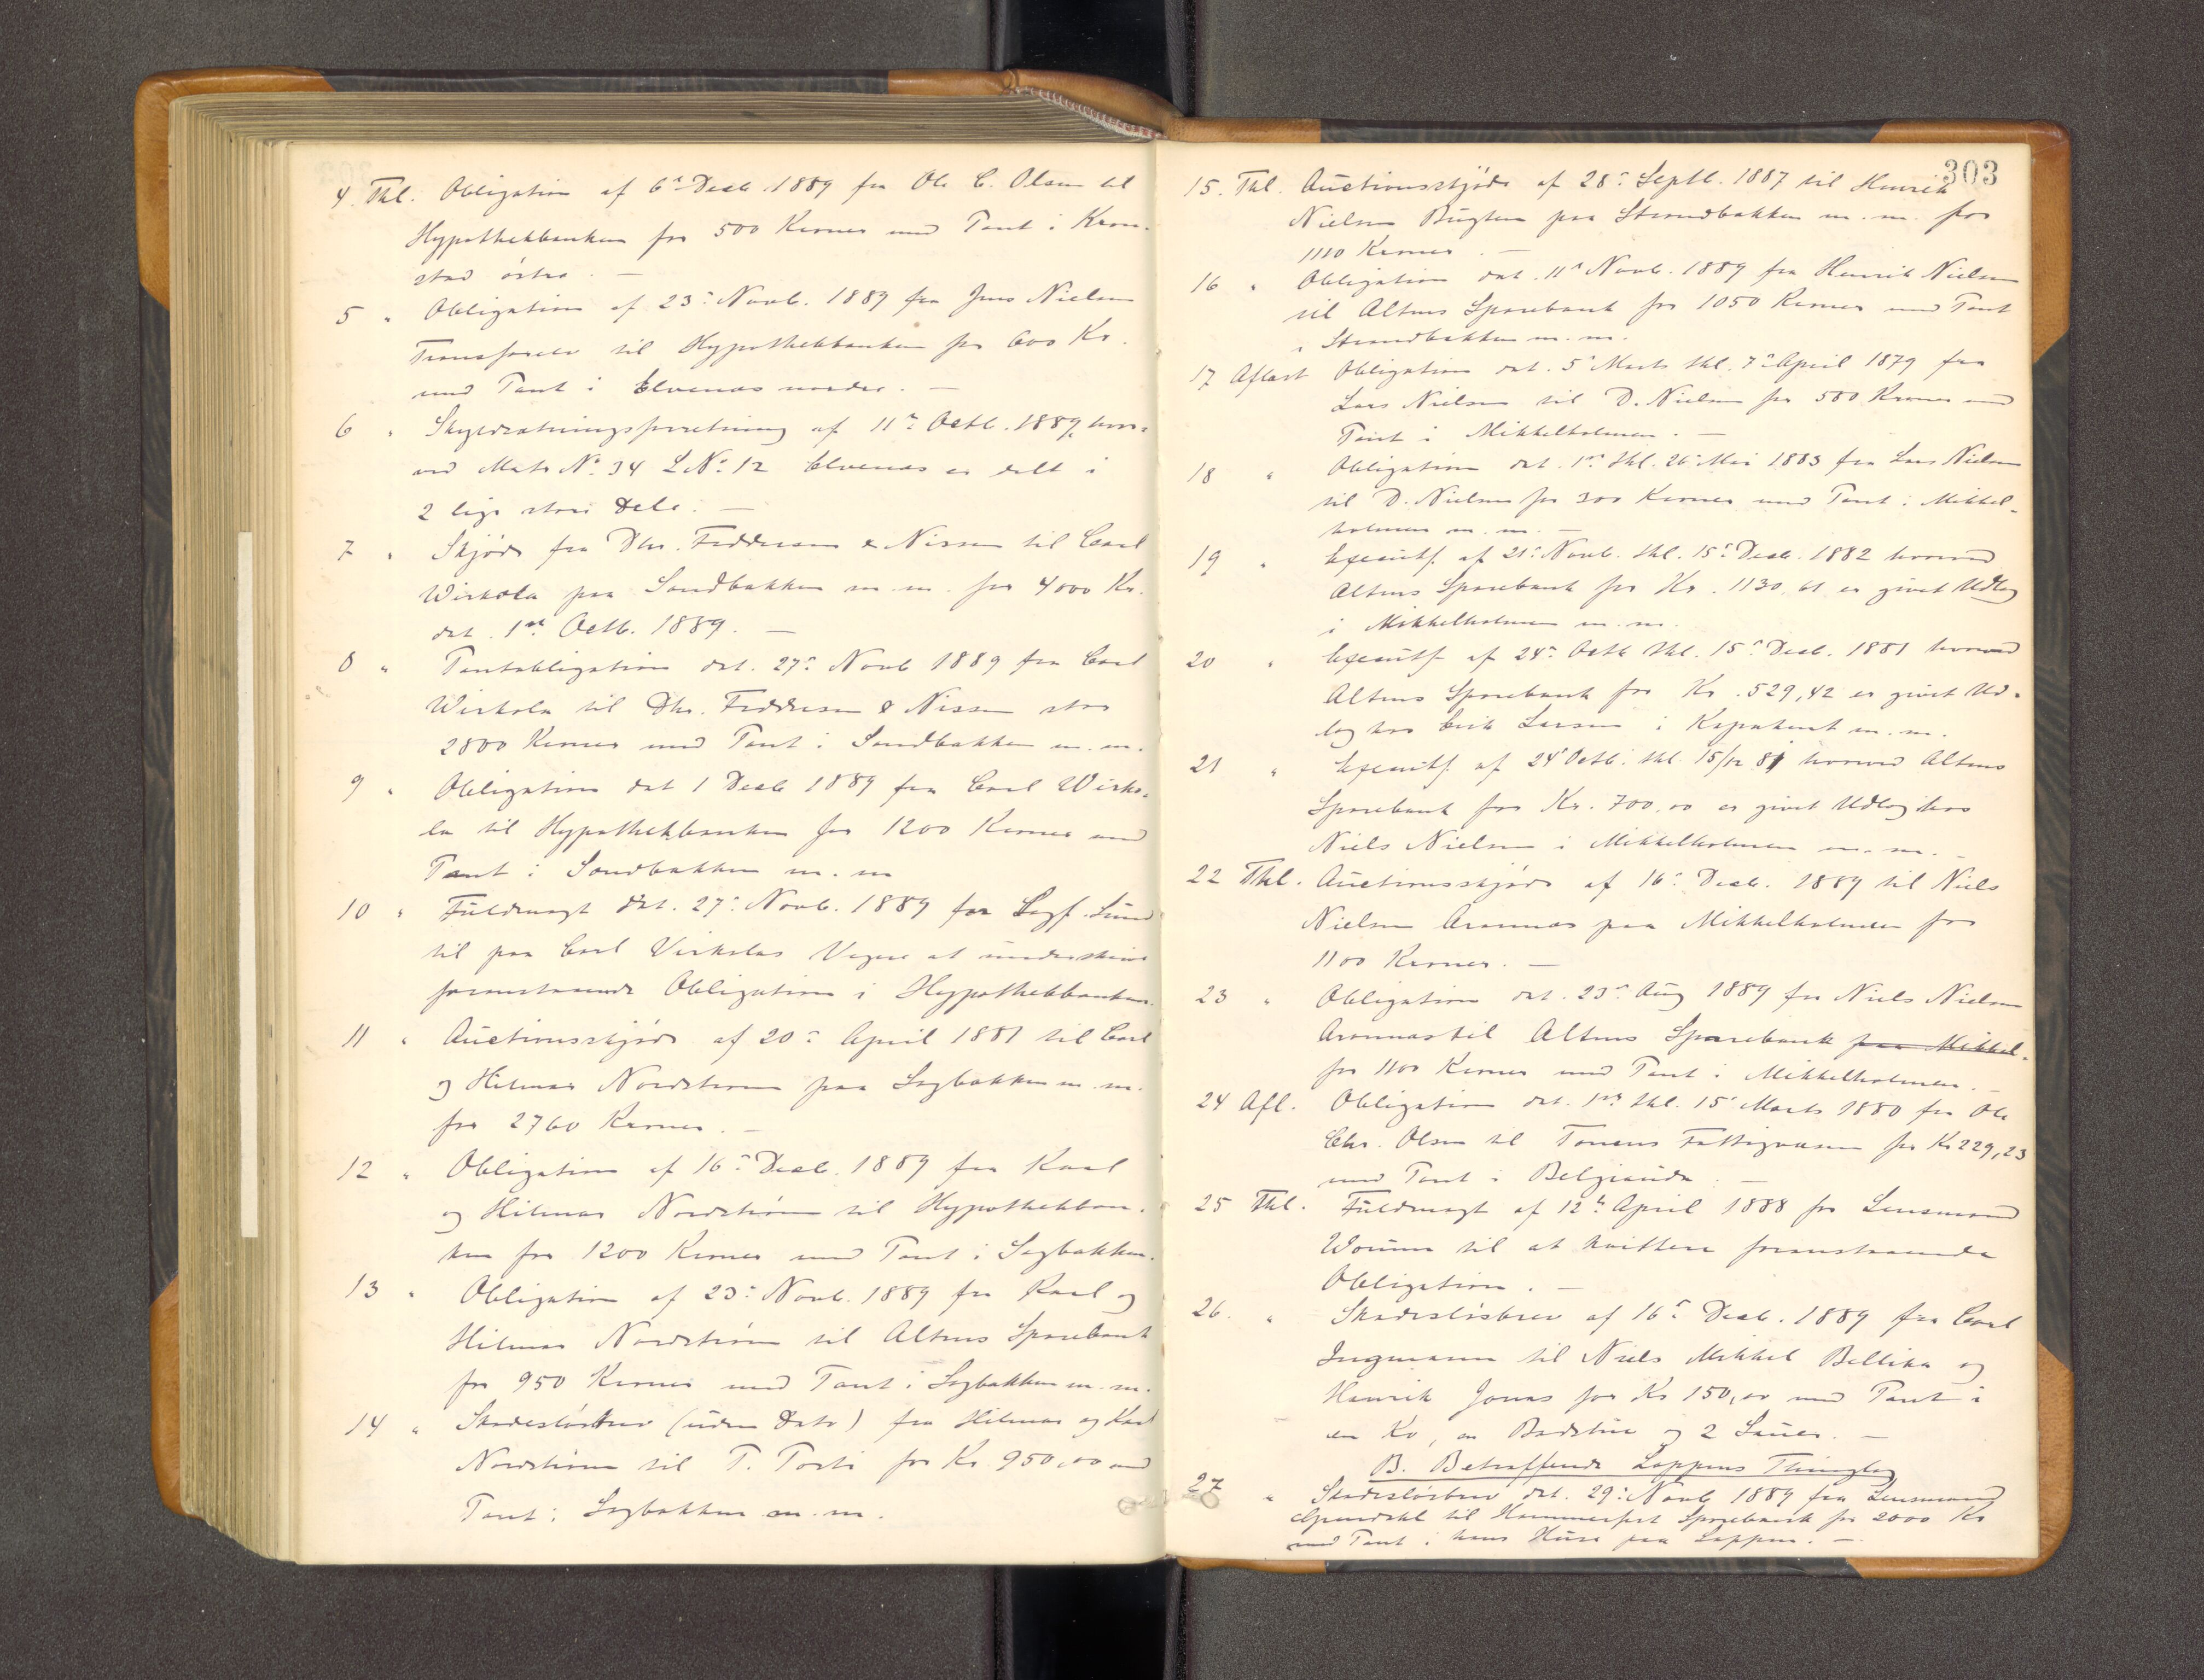 4. Thl. Obligation af 6te Decb. 1889 fra Ole C. Olsen til
Hypothekbanken for 500 Kroner med Pant i Kron-
stad östre. —
5 " Obligation af 23de Novb. 1889 fra Jens Nielsen
Transfarelv til Hypothekbanken for 600 Kr.
med Pant i Elvenæs nordre. —
6 " Skyldsætningsforretning af 11te Octb. 1889, hvor-
ved Matr No. 34 L No. 12 Elvenæs er delt i
2 lige store Dele. —
7 " Skjöde fra Dhr. Feddersen & Nissen til Carl
Wirkola paa Sandbakken m. m. for 4000 Kr.
dat. 1ste Octb. 1889. —
8 " Pantobligation dat. 27de Novb 1889 fra Carl
Wirkola til Dhr. Feddersen & Nissen stor
2800 Kroner med Pant i Sandbakken m. m.
9 " Obligation dat 1 Decb 1889 fra Carl Wirko-
la til Hypothekbanken for 1200 Kroner med
Pant i Sandbakken m. m
10 " Fuldmagt dat. 27de Novb. 1889 for Sagf. Lund
til paa Carl Virkolas Vegne at underskrive
foranstaaende Obligation i Hypothekbanken.
11 " Auctionsskjöde af 20de April 1881 til Carl
og Hilmar Nordström paa Sagbakken m. m.
for 2760 Kroner. —
12 " Obligation af 16de Decb. 1889 fra Karl
og Hilmar Nordström til Hypothekban-
ken for 1200 Kroner med Pant i Sagbakken.
13 " Obligation af 23de Novb. 1889 fra Karl og
Hilmar Nordström til Altens Sparebank
for 950 Kroner med Pant i Sagbakken m. m.
14 " Skadeslösbrev (uden Dato) fra Hilmar og Karl
Nordström til T. Forti for Kr. 950,00 med
Pant i Sagbakken m. m.
303
15. Thl. Auctionsskjöde af 28de Septb. 1887 til Henrik
Nielsen Bugten paa Strandbakken m. m. for
1110 Kroner. —
16 " Obligation dat. 11te Novb. 1889 fra Henrik Nielsen
til Altens Sparebank for 1050 Kroner med Pant
i Strandbakken m. m.
17 Aflæst Obligation dat. 5te Marts thl. 7de April 1879 fra
Lars Nielsen til D. Nielsen for 580 Kroner med
Pant i Mikkelholmen. —
18 " Obligation dat. 1ste thl. 26de Mai 1883 fra Lars Nielsen
til D. Nielsen for 300 Kroner med Pant i Mikkel-
holmen m. m. —
19 " Executf. af 21de Novb. thl. 15de Decb. 1882 hvorved
Altens Sparebank for Kr. 1130,61 er givet Udlæg
i Mikkelholmen m. m.
20 " Executf. af 24de Octb thl. 15de Decb. 1881 hvorved
Altens Sparebank for Kr. 529,42 er givet Ud-
læg hos Erik Larsen i m. m.
21 " Executf. af 24de Octb. thl. 15/12 81 hvorved Altens
Sparebank for Kr. 700,00 er givet Udlæg hos
Niels Nielsen i Mikkelholmen m. m. —
22 Thl. Auctionsskjöde af 16de Decb. 1889 til Niels
Nielsen Aronnæs paa Mikkelholmen for
1100 Kroner. —
23 " Obligation dat. 23de Aug 1889 fra Niels Nielsen
Aronnæs til Altens Sparebank paa Mikkel-
for 1100 Kroner med Pant i Mikkelholmen. —
24 Afl. Obligation dat. 1ste thl. 15de Marts 1880 fra Ole
Chr. Olsen til Tonens Fattigvæsen for Kr 229,23
med Pant i —
25 Thl. Fuldmagt af 12te April 1888 for Lensmand
Worum til at kvittere foranstaaende
Obligation. —
26. " Skadeslösbrev af 16de Decb. 1889 fra Carl
Ingmann til Niels Mikkel Bellika og
Henrik Jonas for Kr 150,00 med Pant i
en Ko, en Badstue og 2 Sauer. —
B. Betræffende Loppens Thinglag
27 " Skadeslösbrev dat. 29de Novb 1889 fra Lensmand
til Hammerfest Sparebank for 2000 Kr
med Pant i hans Huse paa Loppen. —